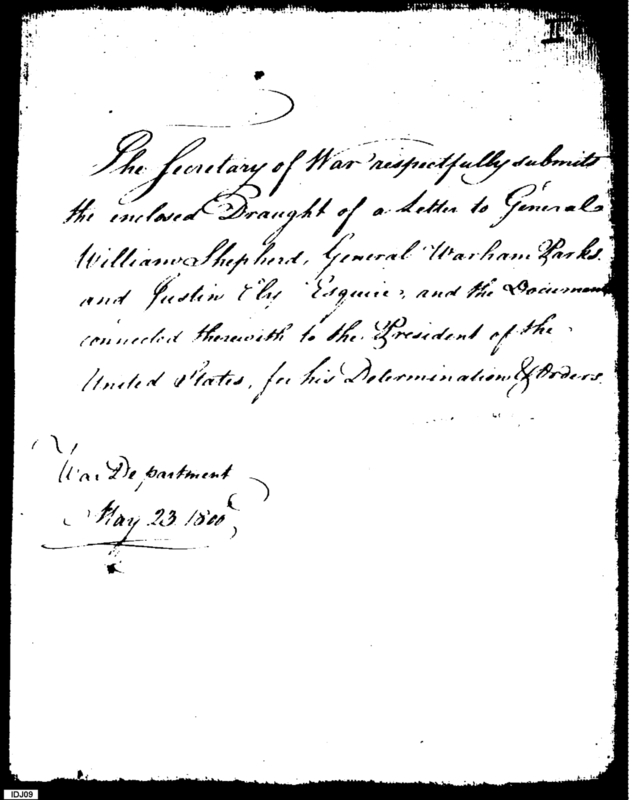 II
The Secretary of War respectfully submits
the enclosed Draught of a Letter to General
William Shepherd, General Warham Parks
and Justin Ely Esquire, and the Document
connected therewith to the President of the
United States, for his Determination & Orders.
War Department
May 23 1800
IDJ09